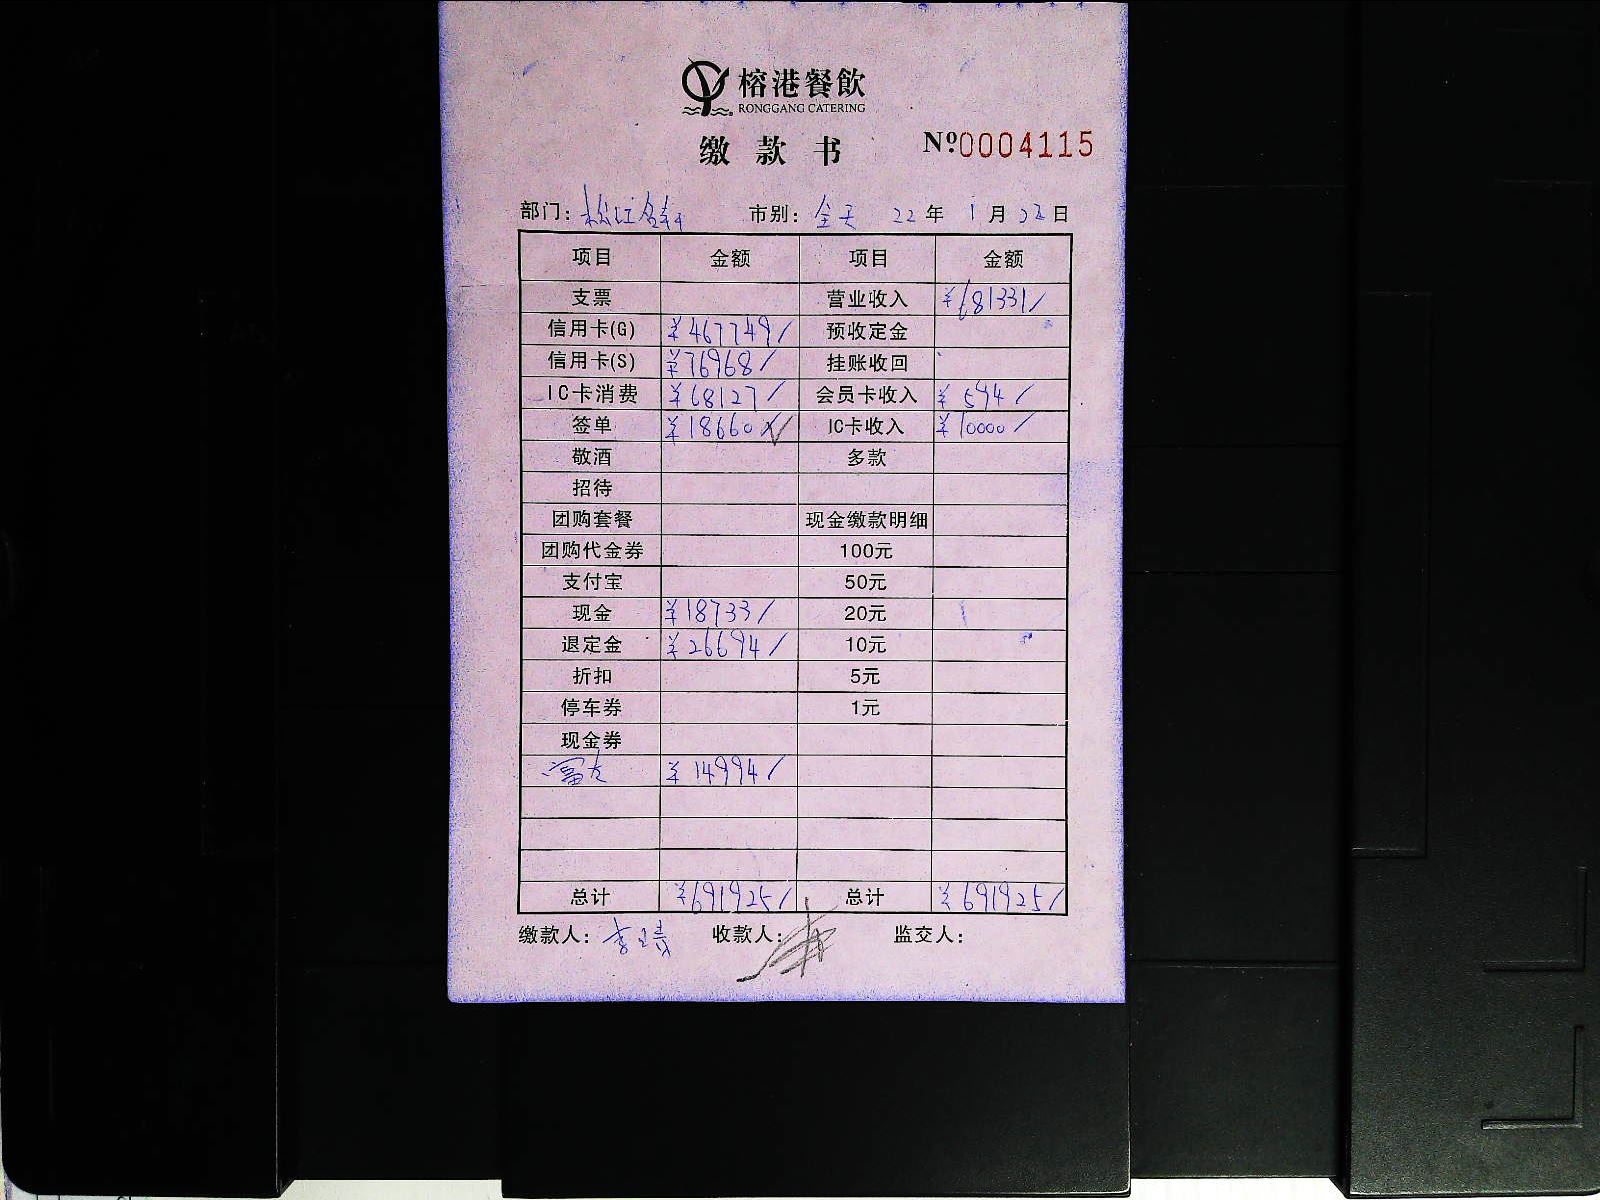 榕港餐飲
RONGGANG CATERING
缴款书 Nº0004115
部门: 松江 市别: 全天 22年 1月 日
项目 金额 项目 金额
支票 营业收入 ¥681331/
信用卡(G) ¥467749/ 预收定金
信用卡(S) ¥76968/ 挂账收回
IC卡消费 ¥68127/ 会员卡收入 ¥594/
签单 ¥18660 IC卡收入 ¥10000/
敬酒 多款
招待
团购套餐 现金缴款明细
团购代金券 100元
支付宝 50元
现金 ¥18733/ 20元
退定金 ¥26694/ 10元
折扣 5元
停车券 1元
现金券
¥14994/
总计 ¥691925/ 总计 ¥691925/
缴款人: 李 收款人: 监交人: